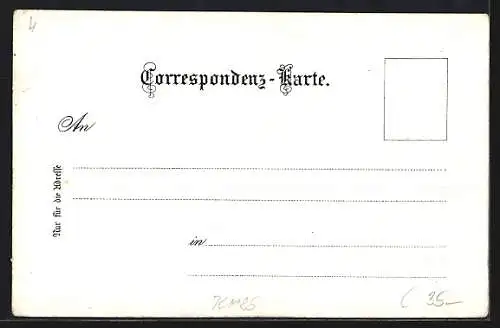 4
Correspondenz-Karte.
An
Nur für die Adresse
in
35-